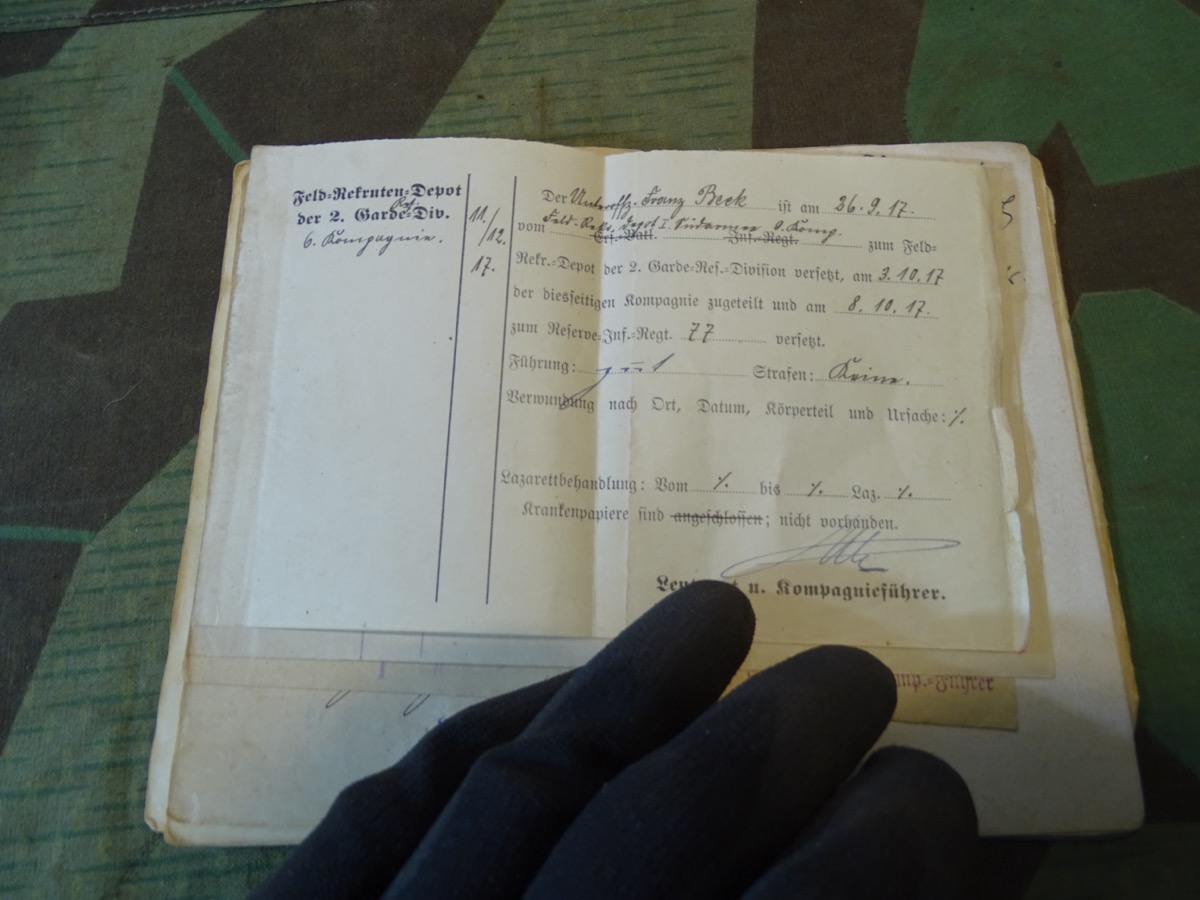 Feld-Rekruten-Depot
der 2. Garde-Res.-Div.
6. Kompagnie.
11./12.
17.
Der Unteroffz. Franz Beck ist am 26.9.17.
vom Feld-Rekr. Depot I. Südarmee 9. Komp. Ers.-Batl. Inf.-Regt. zum Feld-
Rekr.-Depot der 2. Garde-Res.-Division versetzt, am 3.10.17
der diesseitigen Kompagnie zugeteilt und am 8.10.17.
zum Reserve-Inf.-Regt. 77 versetzt.
Führung: gut Strafen: Keine.
Verwundung nach Ort, Datum, Körperteil und Ursache: ⁒
Lazarettbehandlung: Vom ⁒ bis ⁒ Laz. ⁒
Krankenpapiere sind angeschlossen; nicht vorhanden.
u. Kompagnieführer.